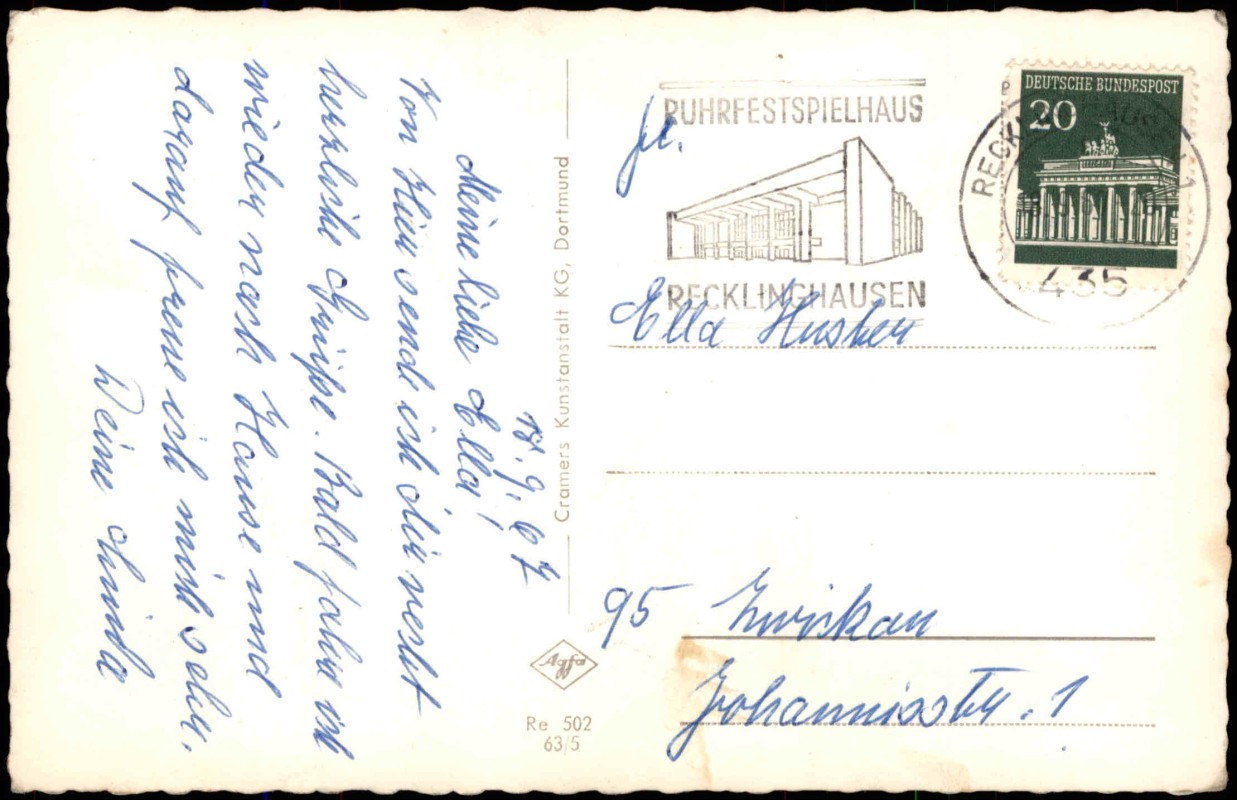 18.9.67
Meine liebe Ella!
Von Hier sende ich dir recht
herzliche Grüße. Bald fahre ich
wieder nach Hause und
darauf freue ich mich sehr.
Deine
Cramers Kunstanstalt KG, Dortmund
Agfa
Re 502
63/5
RUHRFESTSPIELHAUS
RECKLINGHAUSEN
DEUTSCHE BUNDESPOST
20
435
Ella
95 Zwickau
Johannisstr. 1